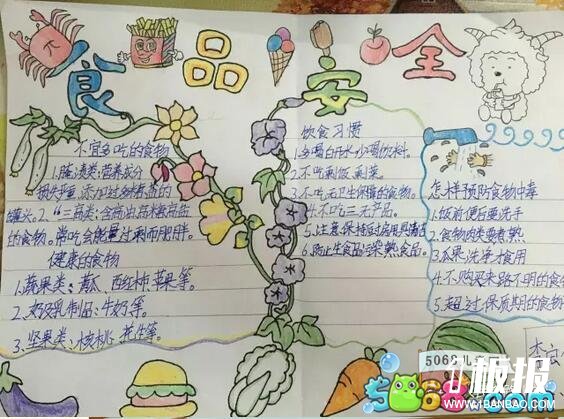 食品安全
不宜多吃的食物
1.腌渍类:营养成分
损失严重,添加过多
罐头。2、"三高类:含高
的食物。常吃会能量过剩而肥胖。
健康的食物
1.蔬果类、黄瓜、西红柿、苹果等。
2.奶及乳制品:牛奶等。
3.坚果类、核桃、花生等。
饮食习惯
1.多喝白开水少喝饮料。
2.不吃剩饭、剩菜。
3.不吃无卫生保障的食物。
4.不吃三无产品。
5.注意保持厨房用具清洁
6.防止生食品污染熟食品。
怎样预防食物中毒
1.饭前便后要洗手
2.食物肉类要煮熟
3.瓜果洗净才食用
4.不购买来路不明的食物
5.超过保质期的食物
5068儿
板报
5068.com
www.1BANBAO.com